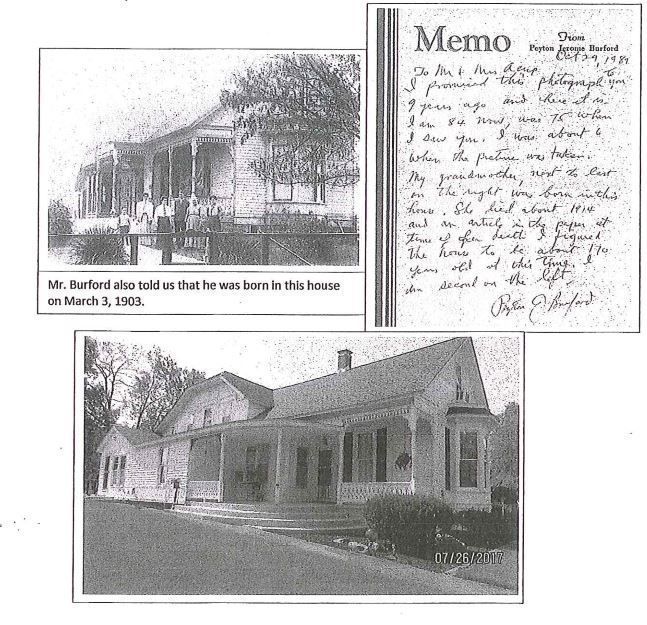 Memo
From
Peyton Jerome Burford
Oct 29, 1989
To Mr & Mrs
I promised this photograph to you
9 years ago and here it is
I am 84 now, was 75 when
I saw you. I was about 6
when the picture was taken.
My grandmother, next to last
on the right was born in this
house. She died about 1914
and an article in the paper at
time of her death I figured
the house to be about 170
years old at this time. I
am second on the left.
Peyton J. Burford
Mr. Burford also told us that he was born in this house
on March 3, 1903.
07/26/2017